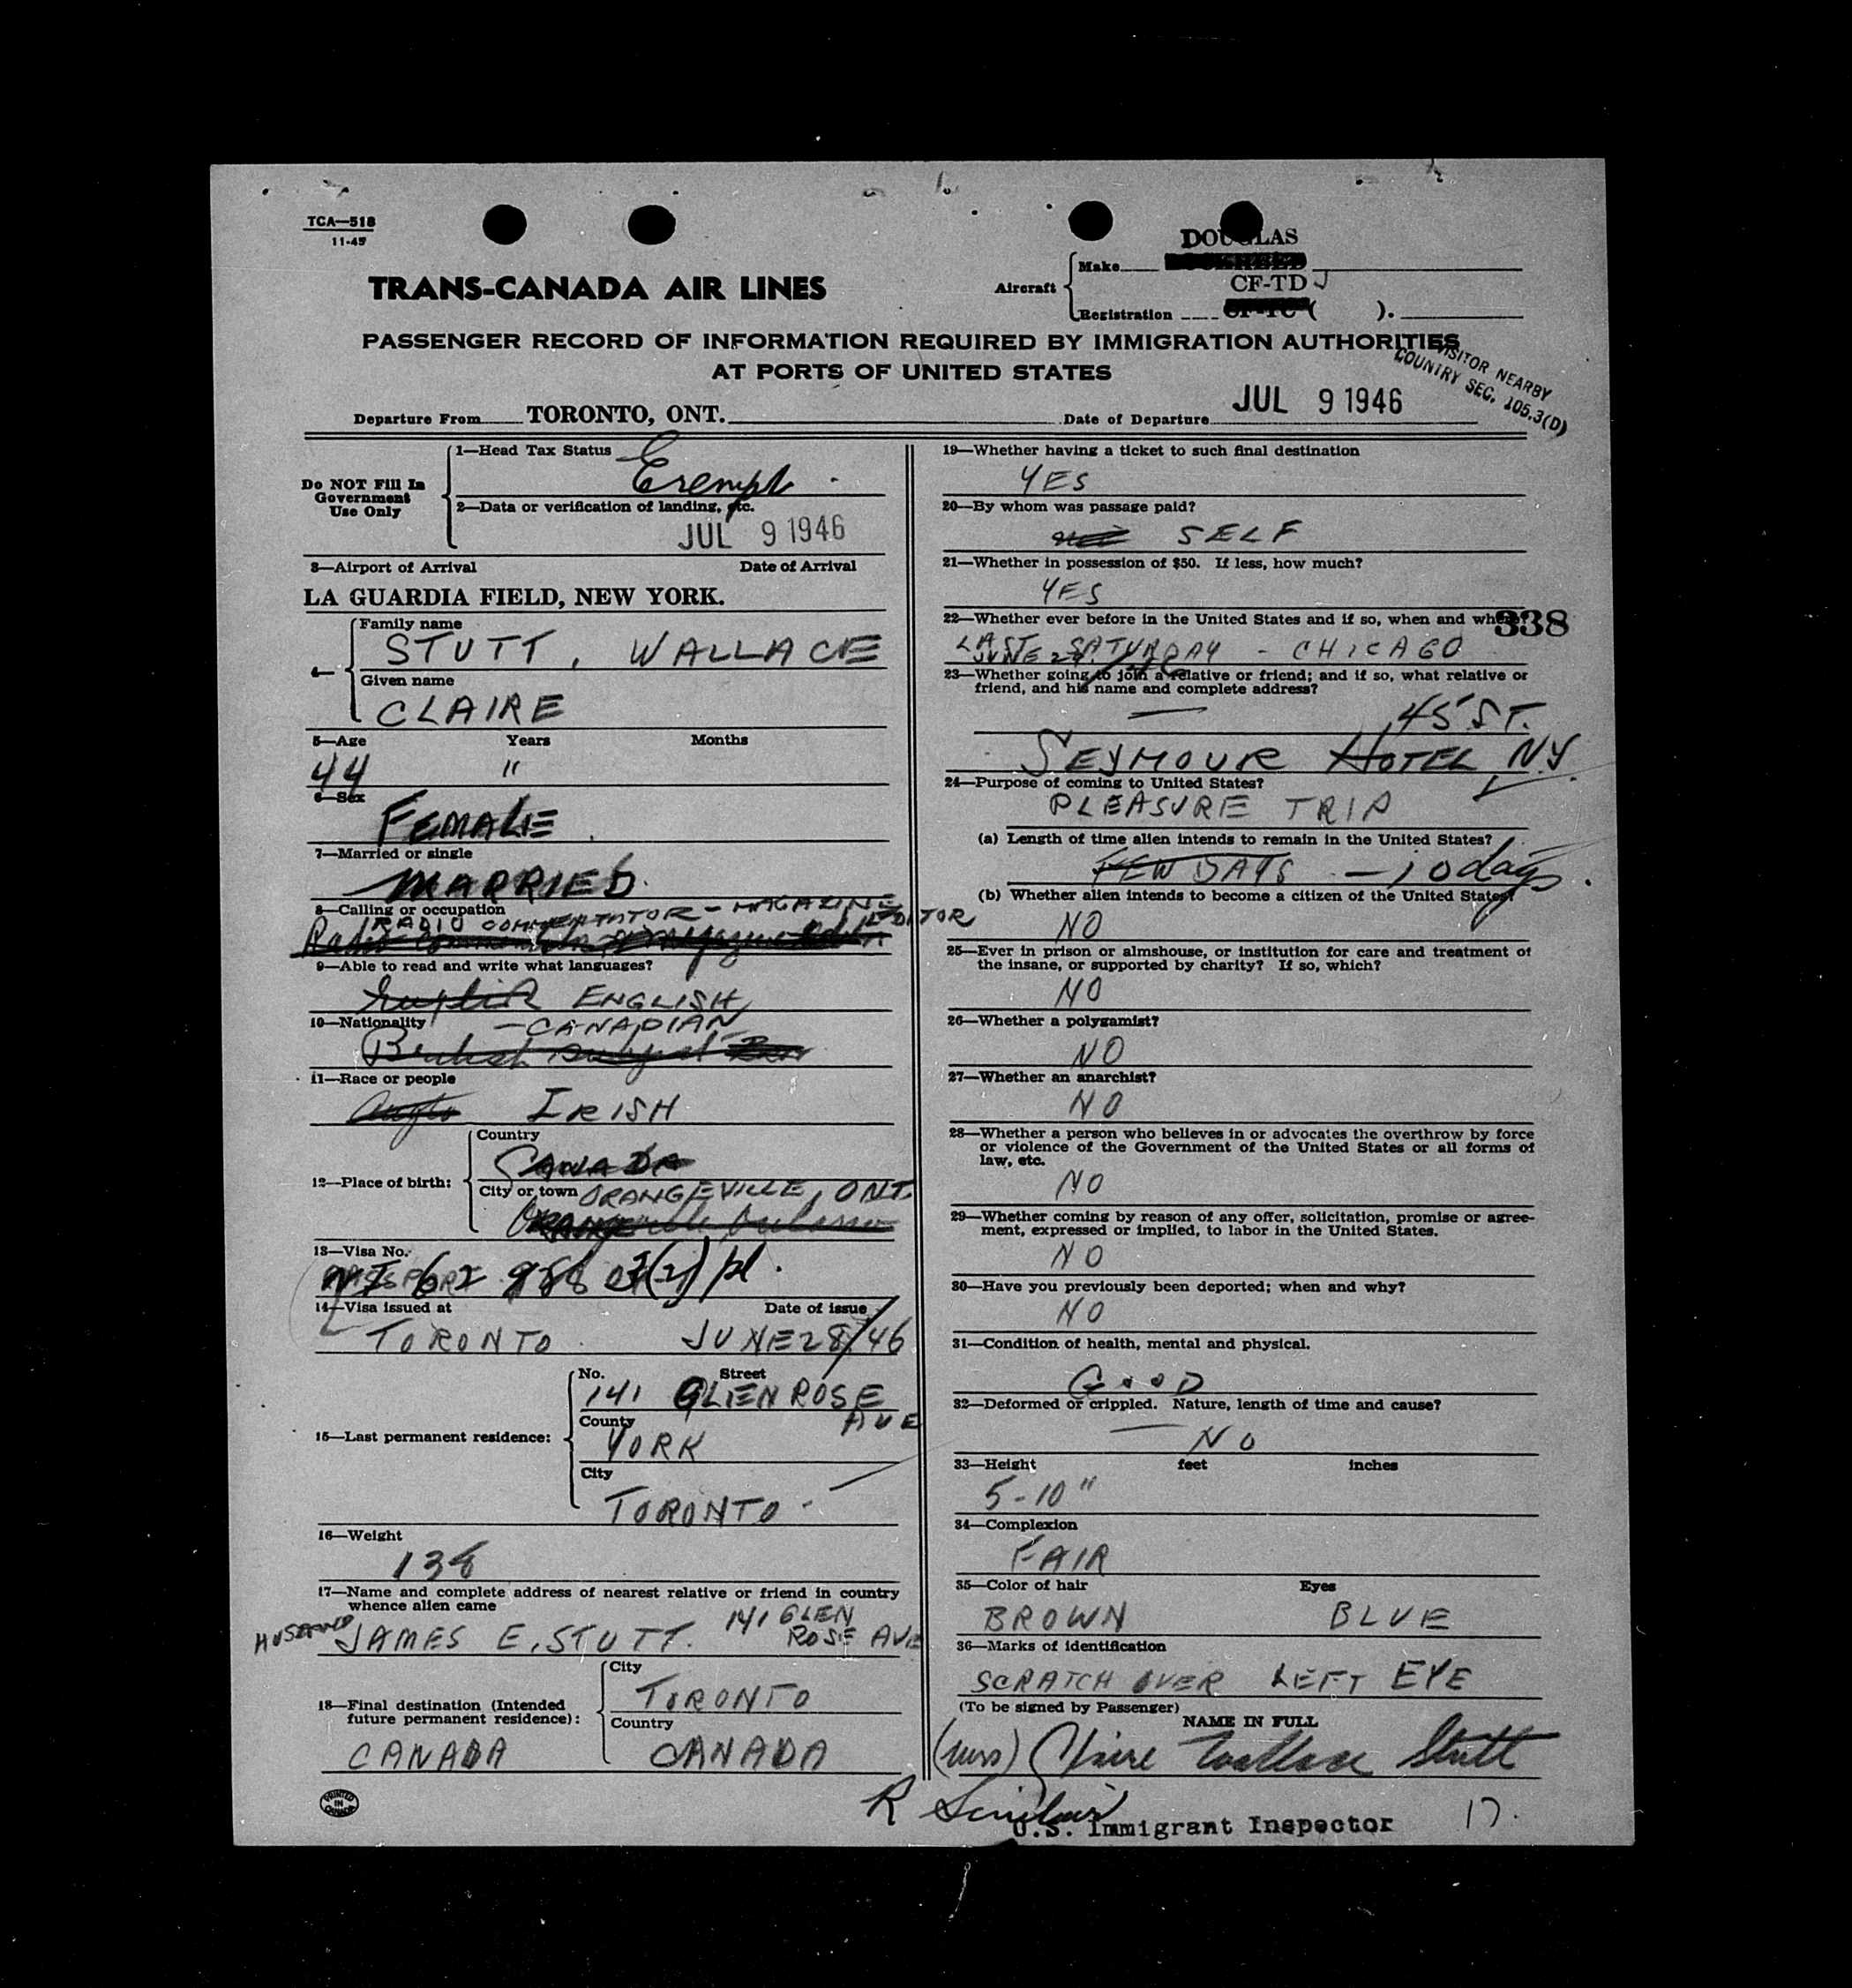 TCA—518
11-45
DOUGLAS
TRANS-CANADA AIR LINES
Aircraft
Make
CF-TD J
Registration CF-TC ( ).
PASSENGER RECORD OF INFORMATION REQUIRED BY IMMIGRATION AUTHORITIES
AT PORTS OF UNITED STATES
VISITOR NEARBY
COUNTRY SEC. 105.3(D)
Departure From TORONTO, ONT. Date of Departure JUL 9 1946
Do NOT Fill In
Government
Use Only
1—Head Tax Status
Exempt
2—Data or verification of landing, etc.
JUL 9 1946
3—Airport of Arrival Date of Arrival
LA GUARDIA FIELD, NEW YORK.
4—
Family name
STUTT, WALLACE
Given name
CLAIRE
5—Age Years Months
44 "
6—Sex
FEMALE
7—Married or single
MARRIED
8—Calling or occupation
RADIO COMMENTATOR - MAGAZINE EDITOR
9—Able to read and write what languages?
English ENGLISH
10—Nationality
- CANADIAN
British Subject
11—Race or people
Anglo IRISH
12—Place of birth:
Country
CANADA
City or town ORANGEVILLE, ONT.
13—Visa No.
14—Visa issued at Date of issue
TORONTO JUNE 28/46
15—Last permanent residence:
No. Street
141 GLENROSE
AVE
County
YORK
City
TORONTO
16—Weight
138
17—Name and complete address of nearest relative or friend in country
whence alien came
HUSBAND JAMES E. STUTT. 141 GLEN
ROSE AVE
18—Final destination (Intended
future permanent residence):
City
TORONTO
Country
CANADA CANADA
PRINTED
IN
CANADA
19—Whether having a ticket to such final destination
YES
20—By whom was passage paid?
SELF
21—Whether in possession of $50. If less, how much?
YES
22—Whether ever before in the United States and if so, when and where?
338
LAST SATURDAY - CHICAGO
23—Whether going to join a relative or friend; and if so, what relative or
friend, and his name and complete address?
45 ST.
SEYMOUR HOTEL N.Y.
24—Purpose of coming to United States?
PLEASURE TRIP
(a) Length of time alien intends to remain in the United States?
FEW DAYS — 10 days.
(b) Whether alien intends to become a citizen of the United States?
NO
25—Ever in prison or almshouse, or institution for care and treatment of
the insane, or supported by charity? If so, which?
NO
26—Whether a polygamist?
NO
27—Whether an anarchist?
NO
28—Whether a person who believes in or advocates the overthrow by force
or violence of the Government of the United States or all forms of
law, etc.
NO
29—Whether coming by reason of any offer, solicitation, promise or agree-
ment, expressed or implied, to labor in the United States.
NO
30—Have you previously been deported; when and why?
NO
31—Condition of health, mental and physical.
GOOD
32—Deformed or crippled. Nature, length of time and cause?
— NO
33—Height feet inches
5-10"
34—Complexion
FAIR
35—Color of hair Eyes
BROWN BLUE
36—Marks of identification
SCRATCH OVER LEFT EYE
(To be signed by Passenger)
NAME IN FULL
(Mrs) Claire Wallace Stutt
R Sinclair
U.S. Immigrant Inspector 17.